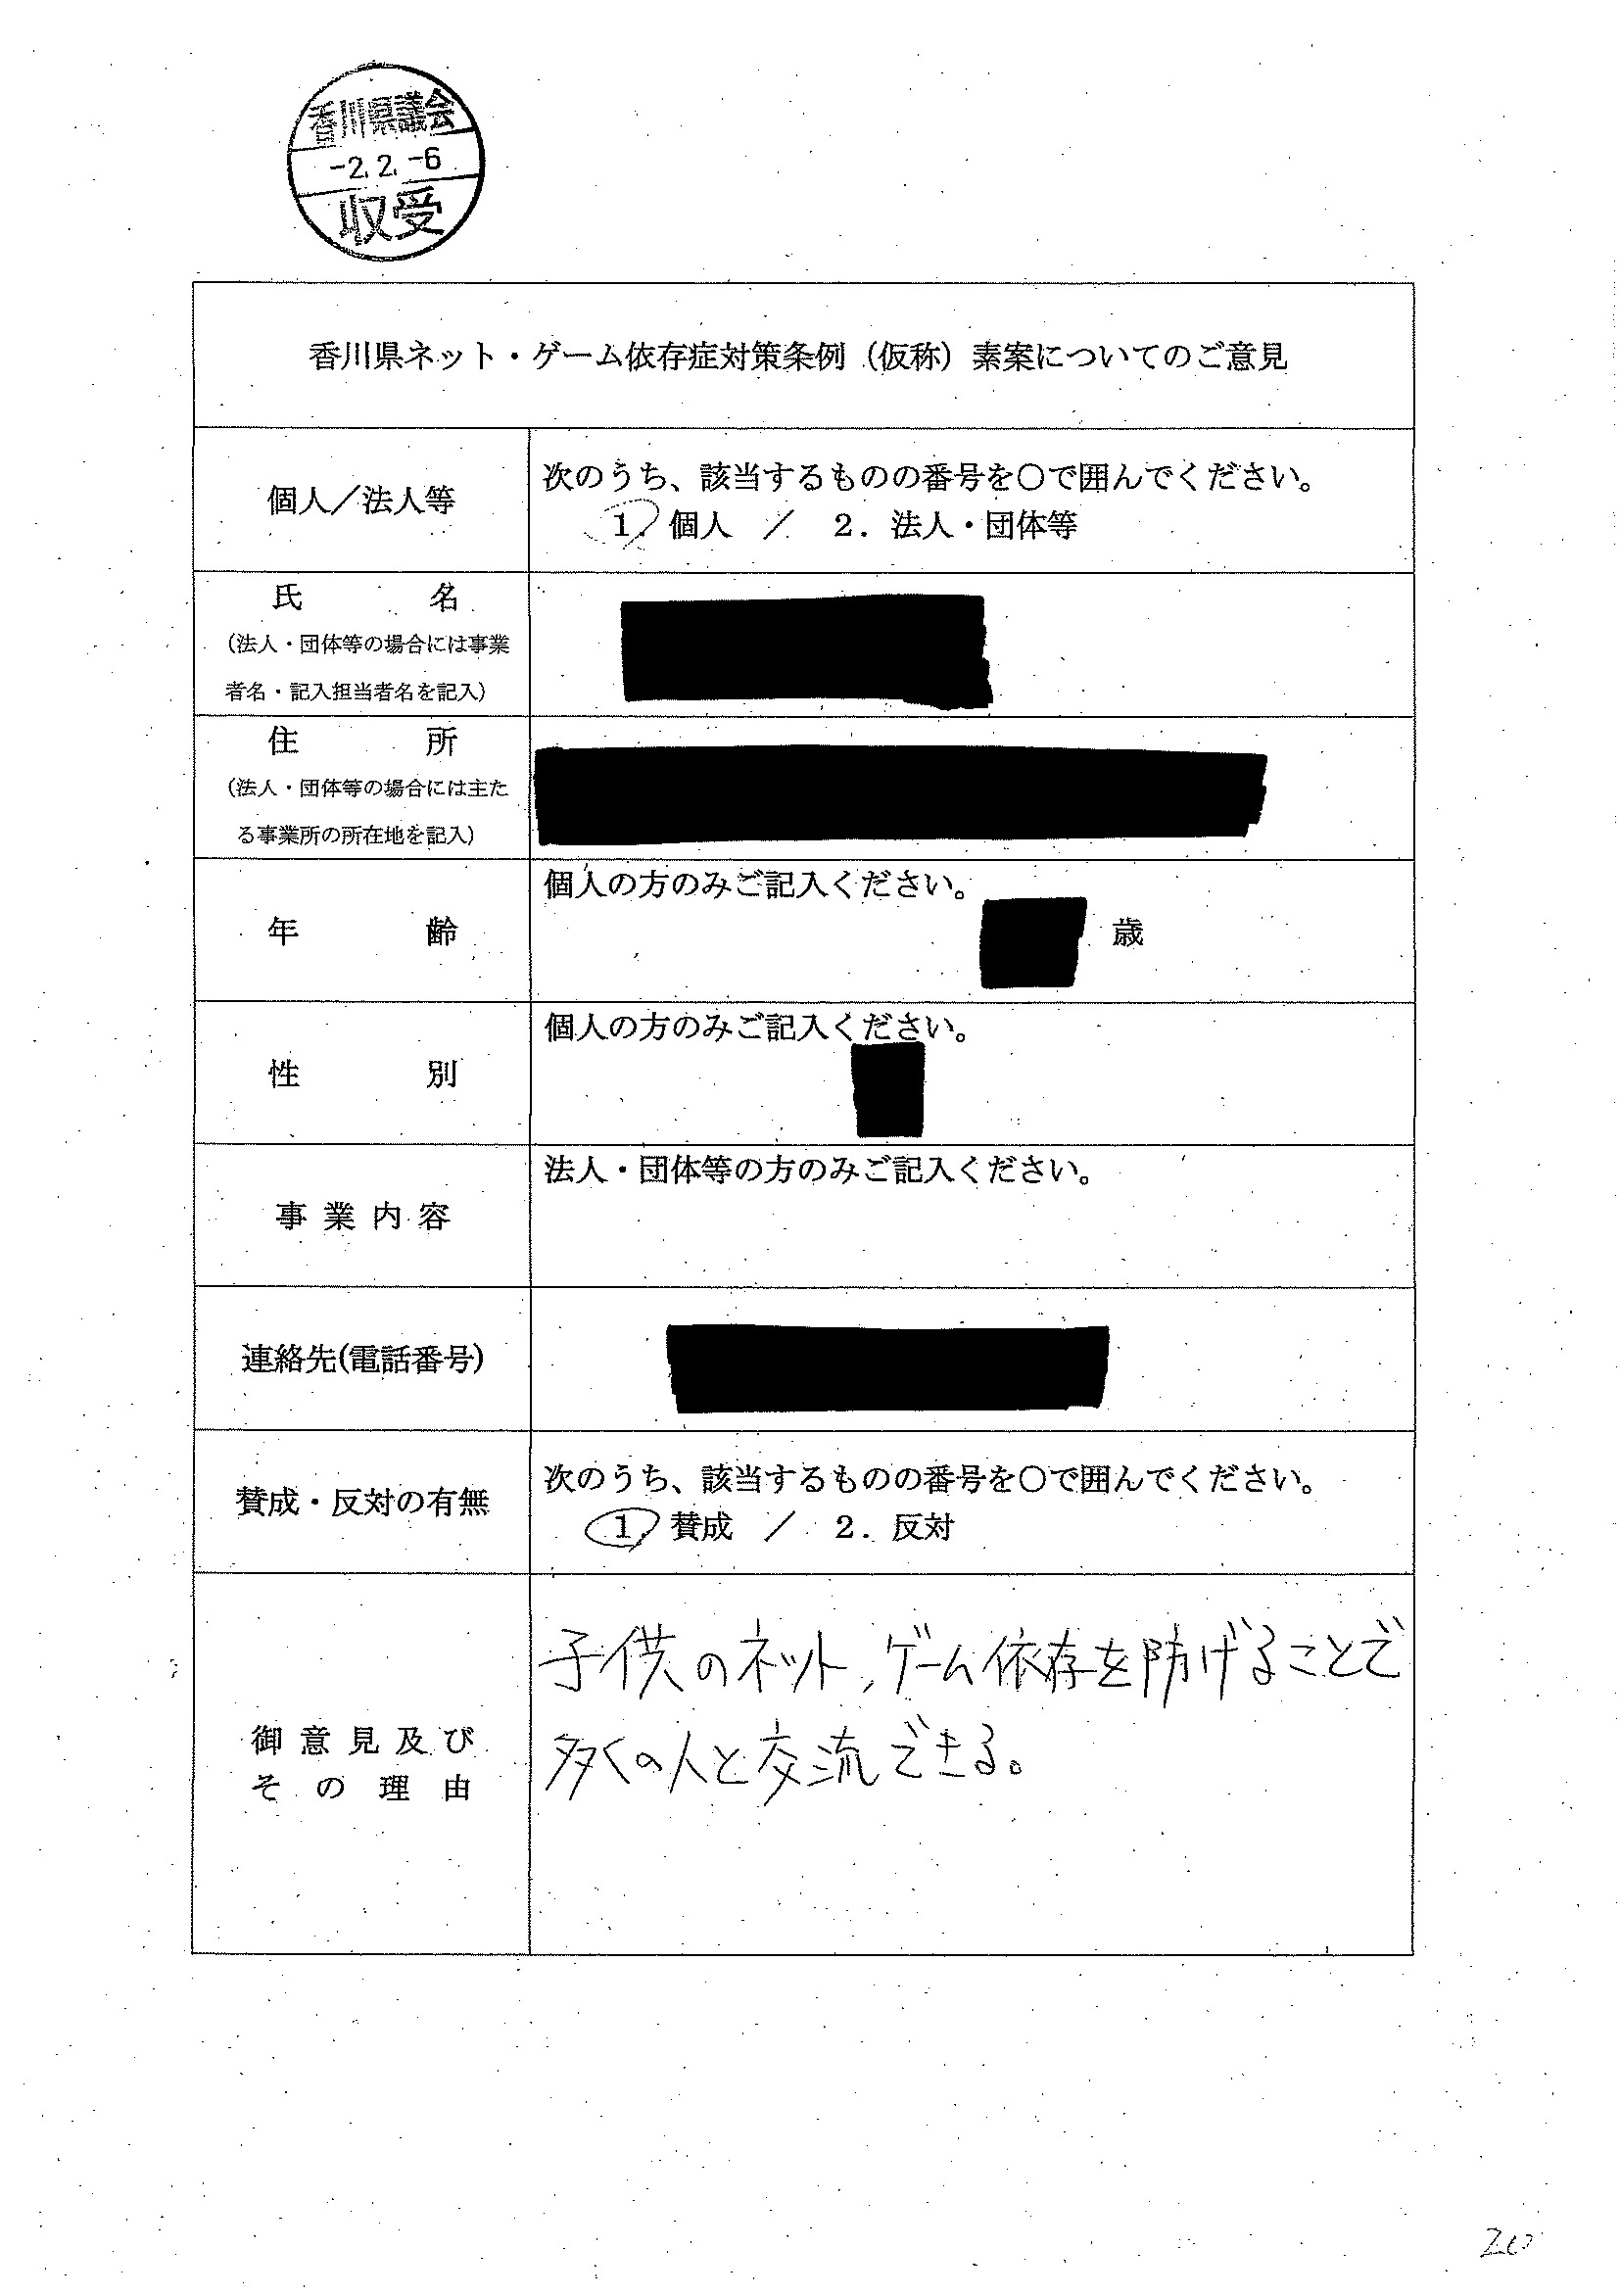 香川県議会
-2.2.-6
収受
香川県ネット・ゲーム依存症対策条例（仮称）素案についてのご意見
個人／法人等
次のうち、該当するものの番号を○で囲んでください。
1. 個人 ／ 2. 法人・団体等
氏名
（法人・団体等の場合には事業
者名・記入担当者名を記入）
住所
（法人・団体等の場合には主た
る事業所の所在地を記入）
年齢
個人の方のみご記入ください。
歳
性別
個人の方のみご記入ください。
事業内容
法人・団体等の方のみご記入ください。
連絡先(電話番号)
賛成・反対の有無
次のうち、該当するものの番号を○で囲んでください。
1. 賛成 ／ 2. 反対
御意見及び
その理由
子供のネット、ゲーム依存を防げることで
多くの人と交流できる。